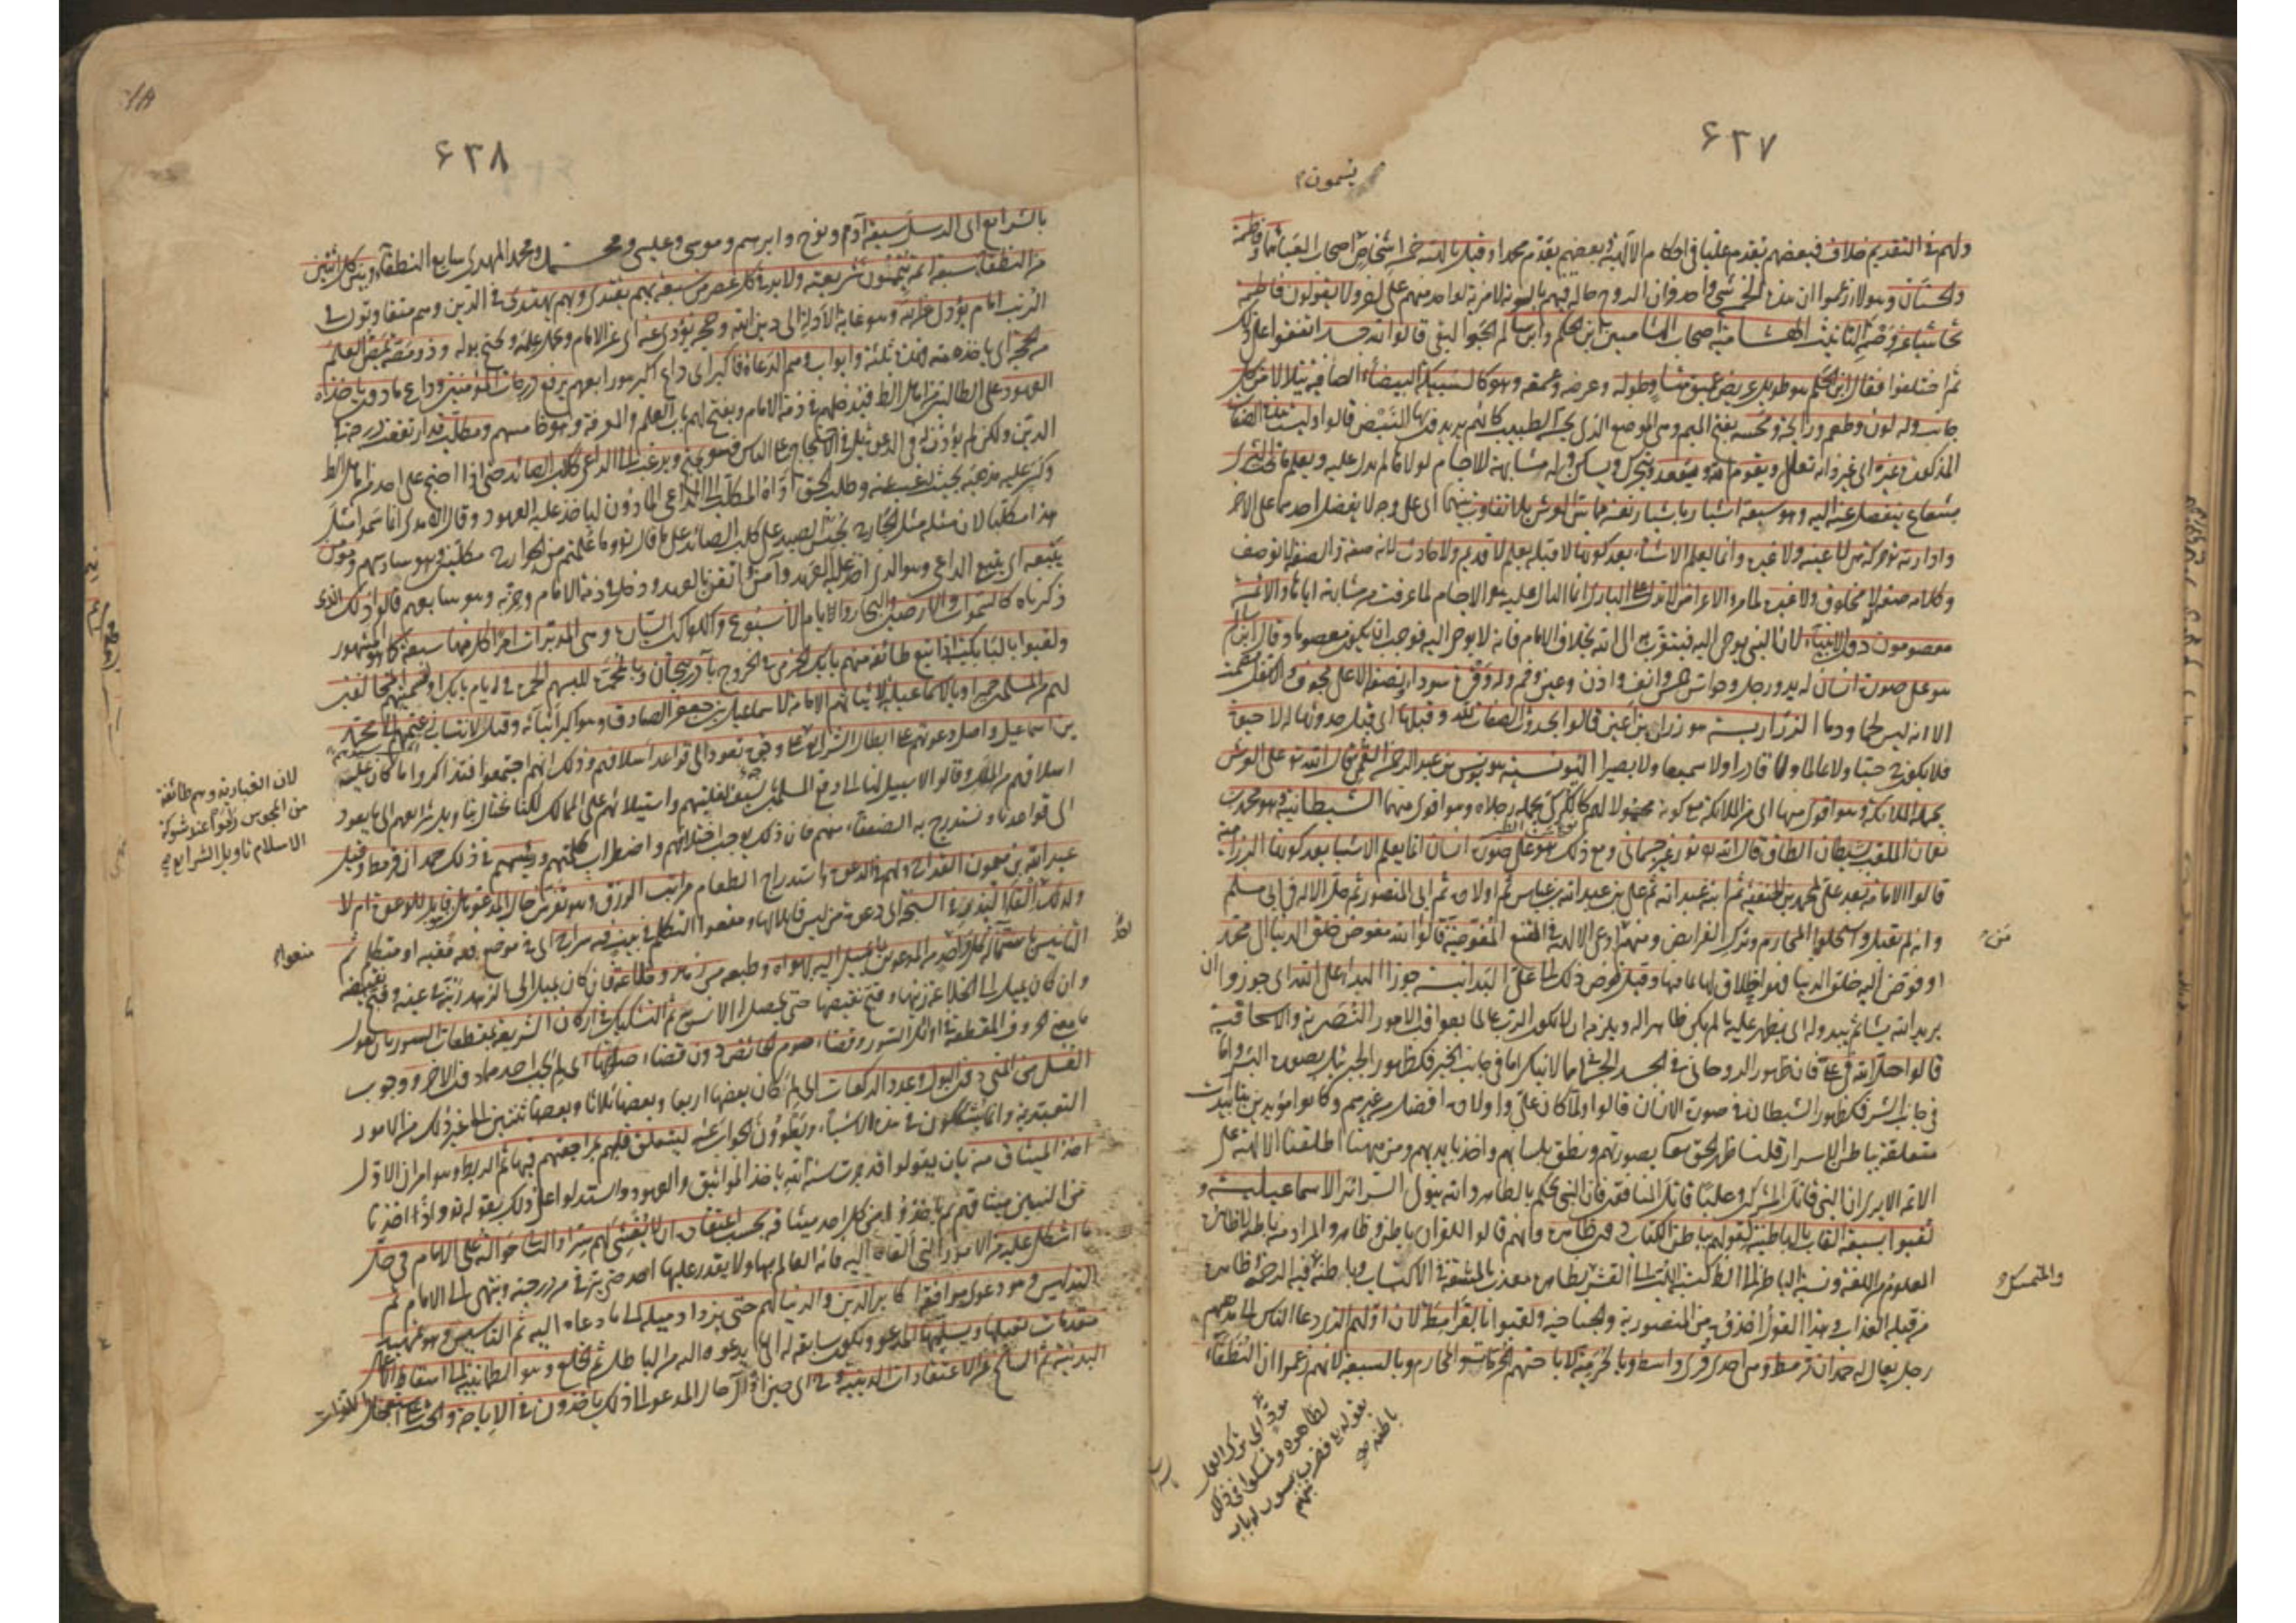 ٦٣٧
يسمون
ولهم في التقديم خلاف فبعضهم يقدم عليا في احكام الالهية وبعضهم يقدم محمدا وقيل بالهية خمسة اشخاص اصحاب العباء هما وفاطمة
والحسنان وهؤلاء زعموا ان هذه الخمسة شئ واحد وان الروح حالة فيهم بالسوية لا مزية لواحد منهم على اخر ولا يقولون فاطمة
تحاشيا عن وصمة التانيث الهشامية اصحاب الهشامين ابن الحكم وابن سالم الجواليقي قالوا الله جسد اتفقوا على ذلك
ثم اختلفوا فقال ابن الحكم هو طويل عريض عميق متساو طوله وعرضه وعمقه وهو كالسبيكة البيضاء الصافية يتلالا من كل
جانب وله لون وطعم ورائحة ومجسه بفتح الميم وهي الموضع الذي يجسه الطبيب كانهم يريدون بها النبض قالوا وليست هذه الصفات
المذكورة غيره اي غير ذاته تعالى ويقوم الله ويقعد ويتحرك ويسكن وله مشابهة للاجسام لولاها لم تدل عليه ويعلم ما تحت الثرى
بشعاع ينفصل عنه اليه وهو سبعة اشبار باشبار نفسه مماس للعرش بلا تفاوت بينهما اي على وجه لا يفضل احدهما على الاخر
وارادته حركة هي لا عينه ولا غيره وانما يعلم الاشياء بعد كونها لا قبله بعلم لا قديم ولا حادث لانه صفة والصفة لا توصف
وكلامه صفة لا مخلوق ولا غيره لما مر والاعراض لا تدل على الباري انما الدال عليه هو الاجسام لما عرفت من مشابهته اياها والائمة
معصومون دون الانبياء لان النبي يوحى اليه فيتقرب به الى الله بخلاف الامام فانه لا يوحى اليه فوجب ان يكون معصوما وقال ابن سالم
هو على صورة انسان له يد ورجل وحواس خمس وانف واذن وعين وفم وله وفرة سوداء ونصفه الاعلى مجوف والاسفل مصمت
الا انه ليس لحما ودما الزرارية هو زرارة بن اعين قالوا بحدوث الصفات لله وقبلها اي قبل حدوثها له لا حيوة
فلا يكون حيا ولا عالما ولا قادرا ولا سميعا ولا بصيرا اليونسية هو يونس بن عبد الرحمن القمي قال الله تعالى على العرش
يحمله الملائكة وهو اقوى منها اي من الملائكة مع كونه محمولا لهم كالكركي يحمله رجلاه وهو اقوى منهما الشيطانية هو محمد بن
نعمان الملقب بشيطان الطاق قال الله تعالى نور غير جسماني ومع ذلك هو على صورة انسان انما يعلم الاشياء بعد كونها الرزامية
قالوا الامامة بعد علي لمحمد بن الحنفية ثم ابنه عبد الله ثم علي بن عبد الله بن عباس ثم اولاده ثم ابي المنصور ثم حل الاله في ابي مسلم
وانه لم يقتل واستحلوا المحارم وترك الفرائض ومنهم من ادعى الالهية في المقنع المفوضة قالوا الله فوض خلق الدنيا الى محمد
او فوض اليه خلق الدنيا فهو الخلاق لها بما فيها وقيل فوض ذلك الى علي البدائية جوزوا البداء على الله اي جوزوا ان
يريد الله شيئا ثم يبدو له اي يظهر عليه ما لم يكن ظاهرا له ويلزمه ان لا يكون الرب عالما بعواقب الامور النصيرية والاسحاقية
قالوا حل الله في علي فان ظهور الروحاني في الجسد الجسماني مما لا ينكر اما في جانب الخير فكظهور الجبرئيل بصورة البشر واما
في جانب الشر فكظهور الشيطان في صورة الانسان قالوا ولما كان علي واولاده افضل من غيرهم وكانوا مؤيدين بتاييدات
متعلقة بباطن الاسرار قلنا ظهر الحق تعالى بصورتهم ونطق بلسانهم واخذ بايديهم ومن ههنا اطلقنا الالهة على
الائمة الا يرى ان النبي قاتل المشركين وعليا قاتل المنافقين فان النبي يحكم بالظاهر والله يتولى السرائر الاسماعيلية و
لقبوا بسبعة القاب بالباطنية لقولهم بباطن الكتاب دون ظاهره فانهم قالوا للقران باطن وظاهر والمراد منه باطنه لا ظاهره
المعلوم من اللغة ونسبة الباطن الى الظاهر كنسبة اللب الى القشر بظاهره معذب بالمشقة في الاكتساب وباطنه فيه الرحمة وظاهره
والمتمسك
من قبله العذاب وهذا القول اخذوه من المنصورية والجناحية ولقبوا بالقرامطة لان اولهم الذي دعا الناس الى مذهبهم
رجل يقال له حمدان قرمط وهي احدى قرى واسط وبالحرمية لاباحتهم المحرمات والمحارم وبالسبعية لانهم زعموا ان النطقاء
مؤد الى ترك العمل
بظاهره وتمسكوا في ذلك
بقوله تعالى فضرب بينهم بسور له باب
باطنه
٦٣٨
بالشرايع اي الرسل سبعة آدم ونوح وابرهيم وموسى وعيسى ومحمد ومحمد المهدي سابع النطقاء وبين كل اثنين
من النطقاء سبعة ائمة يتممون شريعته ولا بد في كل عصر من سبعة بهم يقتدى وبهم يهتدى في الدين وهم متفاوتون في
الرتب امام يؤدي عن الله وهو غاية الادلة الى دين الله وحجة يؤدي عنه اي عن الامام ويحمل علمه ويحتج به له وذو مصة يمص العلم
من الحجة اي ياخذه منه فهذه ثلثة وابواب وهم الدعاة فاكبر اي داع اكبر هو رابعهم يرفع درجات المؤمنين وداع ماذون ياخذ
العهود على الطالبين من اهل الظاهر فيدخلهم في ذمة الامام ويفتح لهم باب العلم والمعرفة وهو خامسهم ومكلب قد ارتفعت درجته في
الدين ولكن لم يؤذن له في الدعوة بل في الاحتجاج على الناس فهو يحتج ويرغب الى الداعي ككلب الصائد حتى اذا احتج على احد من اهل الظاهر
وكسر عليه مذهبه بحيث رغب عنه وطلب الحق اداه المكلب الى الداعي الماذون لياخذ عليه العهود وقال الامدي انما سموا مثل
هذا مكلبا لان مثله مثل الجارح يحبس الصيد على كلب الصائد على ما قال تعالى وما علمتم من الجوارح مكلبين وهو سادسهم ومؤمن
يتبعه اي يتبع الداعي وهو الذي اخذ عليه العهد وآمن وايقن بالعهد ودخل في ذمة الامام وحزبه وهو سابعهم قالوا ذلك الذي
ذكرناه كالسموات والارضين والبحار والايام الاسبوع والكواكب السيارة وهي المدبرات امرا كل منها سبعة كما هو المشهور
ولقبوا بالبابكية اذ اتبع طائفة منهم بابك الخرمي في الخروج بآذربيجان وبالمحمرة للبسهم الحمرة في ايام بابك او تسميتهم المخالفين
لهم من المسلمين حميرا وبالاسماعيلية لاثباتهم الامامة لاسماعيل بن جعفر الصادق وهو اكبر ابنائه وقيل لانتساب زعيمهم الى محمد
بن اسماعيل واصل دعوتهم على ابطال الشرايع
لان الغيارية وهم طائفة
من المجوس راموا عند شوكة
الاسلام تاويل الشرايع
على وجوه تعود الى قواعد اسلافهم وذلك انهم اجتمعوا فتذاكروا ما كان عليه
اسلافهم من الملك وقالوا لا سبيل لنا الى دفع المسلمين بالسيف لغلبتهم واستيلائهم على الممالك لكنا نحتال بتاويل شرايعهم الى ما يعود
الى قواعدنا ونستدرج به الضعفاء منهم فان ذلك يوجب اختلافهم واضطراب كلمتهم ورئيسهم في ذلك حمدان قرمط وقيل
عبد الله بن ميمون القداح ولهم في الدعوة واستدراج الطغام مراتب الزرق وهو تفرس حال المدعو هل هو قابل للدعوة ام لا
ولذلك منعوا القاء البذر في السبخة اي دعوة من ليس قابلا لها ومنعوا التكلم في بيت فيه سراج اي في موضع فيه فقيه او متكلم ثم
التانيس باستمالة كل واحد من المدعوين بما يميل اليه بهواه وطبعه من زهد وخلاعة فان كان يميل الى الزهد زينه في عينه وقبح نقيضه
وان كان يميل الى الخلاعة زينها وقبح نقيضها حتى يحصل له الانس به ثم التشكيك في اركان الشريعة بمقطعات السور بان يقول
ما معنى الحروف المقطعة في اوائل السور وقضاء صوم الحائض دون قضاء صلوتها اي لم يجب احدهما دون الاخر ووجوب
الغسل من المني دون البول وعدد الركعات اي لم كان بعضها اربعا وبعضها ثلاثا وبعضها ثنتين الى غير ذلك من الامور
التعبدية وانما يشككون في هذه الاشياء ويطوون الجواب عنه ليتعلق قلبهم بمراجعتهم فيها ثم الربط وهو امران الاول
اخذ الميثاق منه بان يقولوا قد جرت سنة الله باخذ المواثيق والعهود واستدلوا على ذلك بقوله تعالى واذ اخذنا
من النبيين ميثاقهم ثم ياخذوا من كل احد ميثاقه بحسب اعتقاده ان لا يفشي لهم سرا والثاني حوالته على الامام في حل
ما اشكل عليه من الامور التي القاها اليه فانه العالم بها ولا يقدر عليها احد حتى يترقى من درجته وينتهي الى الامام ثم
التدليس وهو دعوى موافقة اكابر الدين والدنيا لهم حتى يزداد ميله الى ما دعاه اليه ثم التاسيس وهو تمهيد
مقدمات يقبلها ويسلمها المدعو وتكون سابقة له الى ما يدعوه اليه من الباطل ثم الخلع وهو الطمانينة الى اسقاط الاعمال
البدنية ثم السلخ عن الاعتقادات الدينية وحينئذ اي حين اذ آل حال المدعو الى ذلك ياخذون في الاباحة والحث على استعجال اللذات